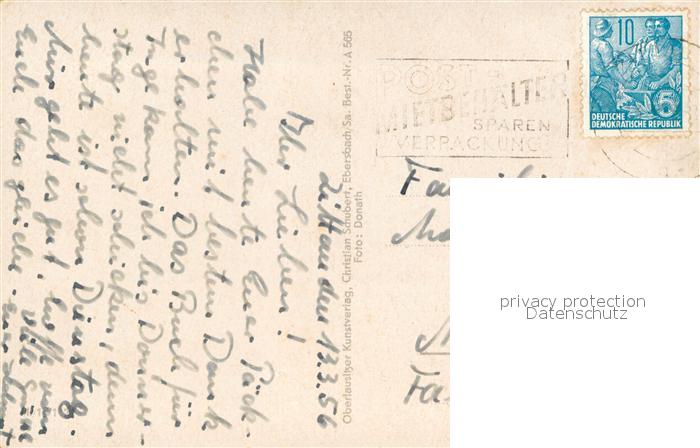 Zittau den 13.3.56
Ihr Lieben!
Habe heute Euer Päck-
chen mit bestem Dank
erhalten. Das Buch für
Inge kann ich bis Donner-
stag nicht schicken, denn
heute ist schon Dienstag.
Mir geht es gut, hoffe von
Euch das gleiche.
Viele Grüße
Oberlausitzer Kunstverlag, Christian Schubert, Ebersbach/Sa. Best.-Nr. A 565
Foto: Donath
POST-
MIETBEHÄLTER
SPAREN
VERPACKUNG
10
5
DEUTSCHE
DEMOKRATISCHE REPUBLIK
privacy protection
Datenschutz